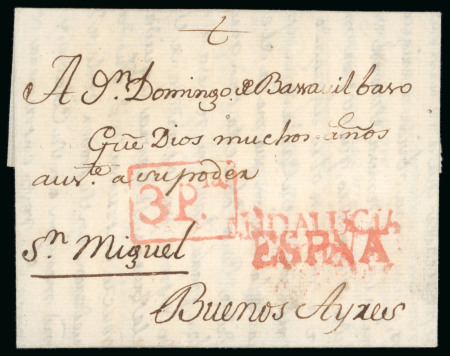 A Dn. Domingo de Basavilbaso
Gue. Dios muchos años
aus.te a su poder
3 P.
ANDALUCIA
ESPÑA
Sn. Miguel
Buenos Ayres